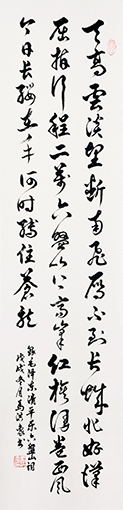 天高雲淡望斷南飛雁不到長城非好漢
屈指行程二萬六盤山上高峯紅旗漫卷西風
今日長纓在手何時縛住蒼龍
錄毛澤東清平樂六盤山詞
戊戌冬月馬洪書